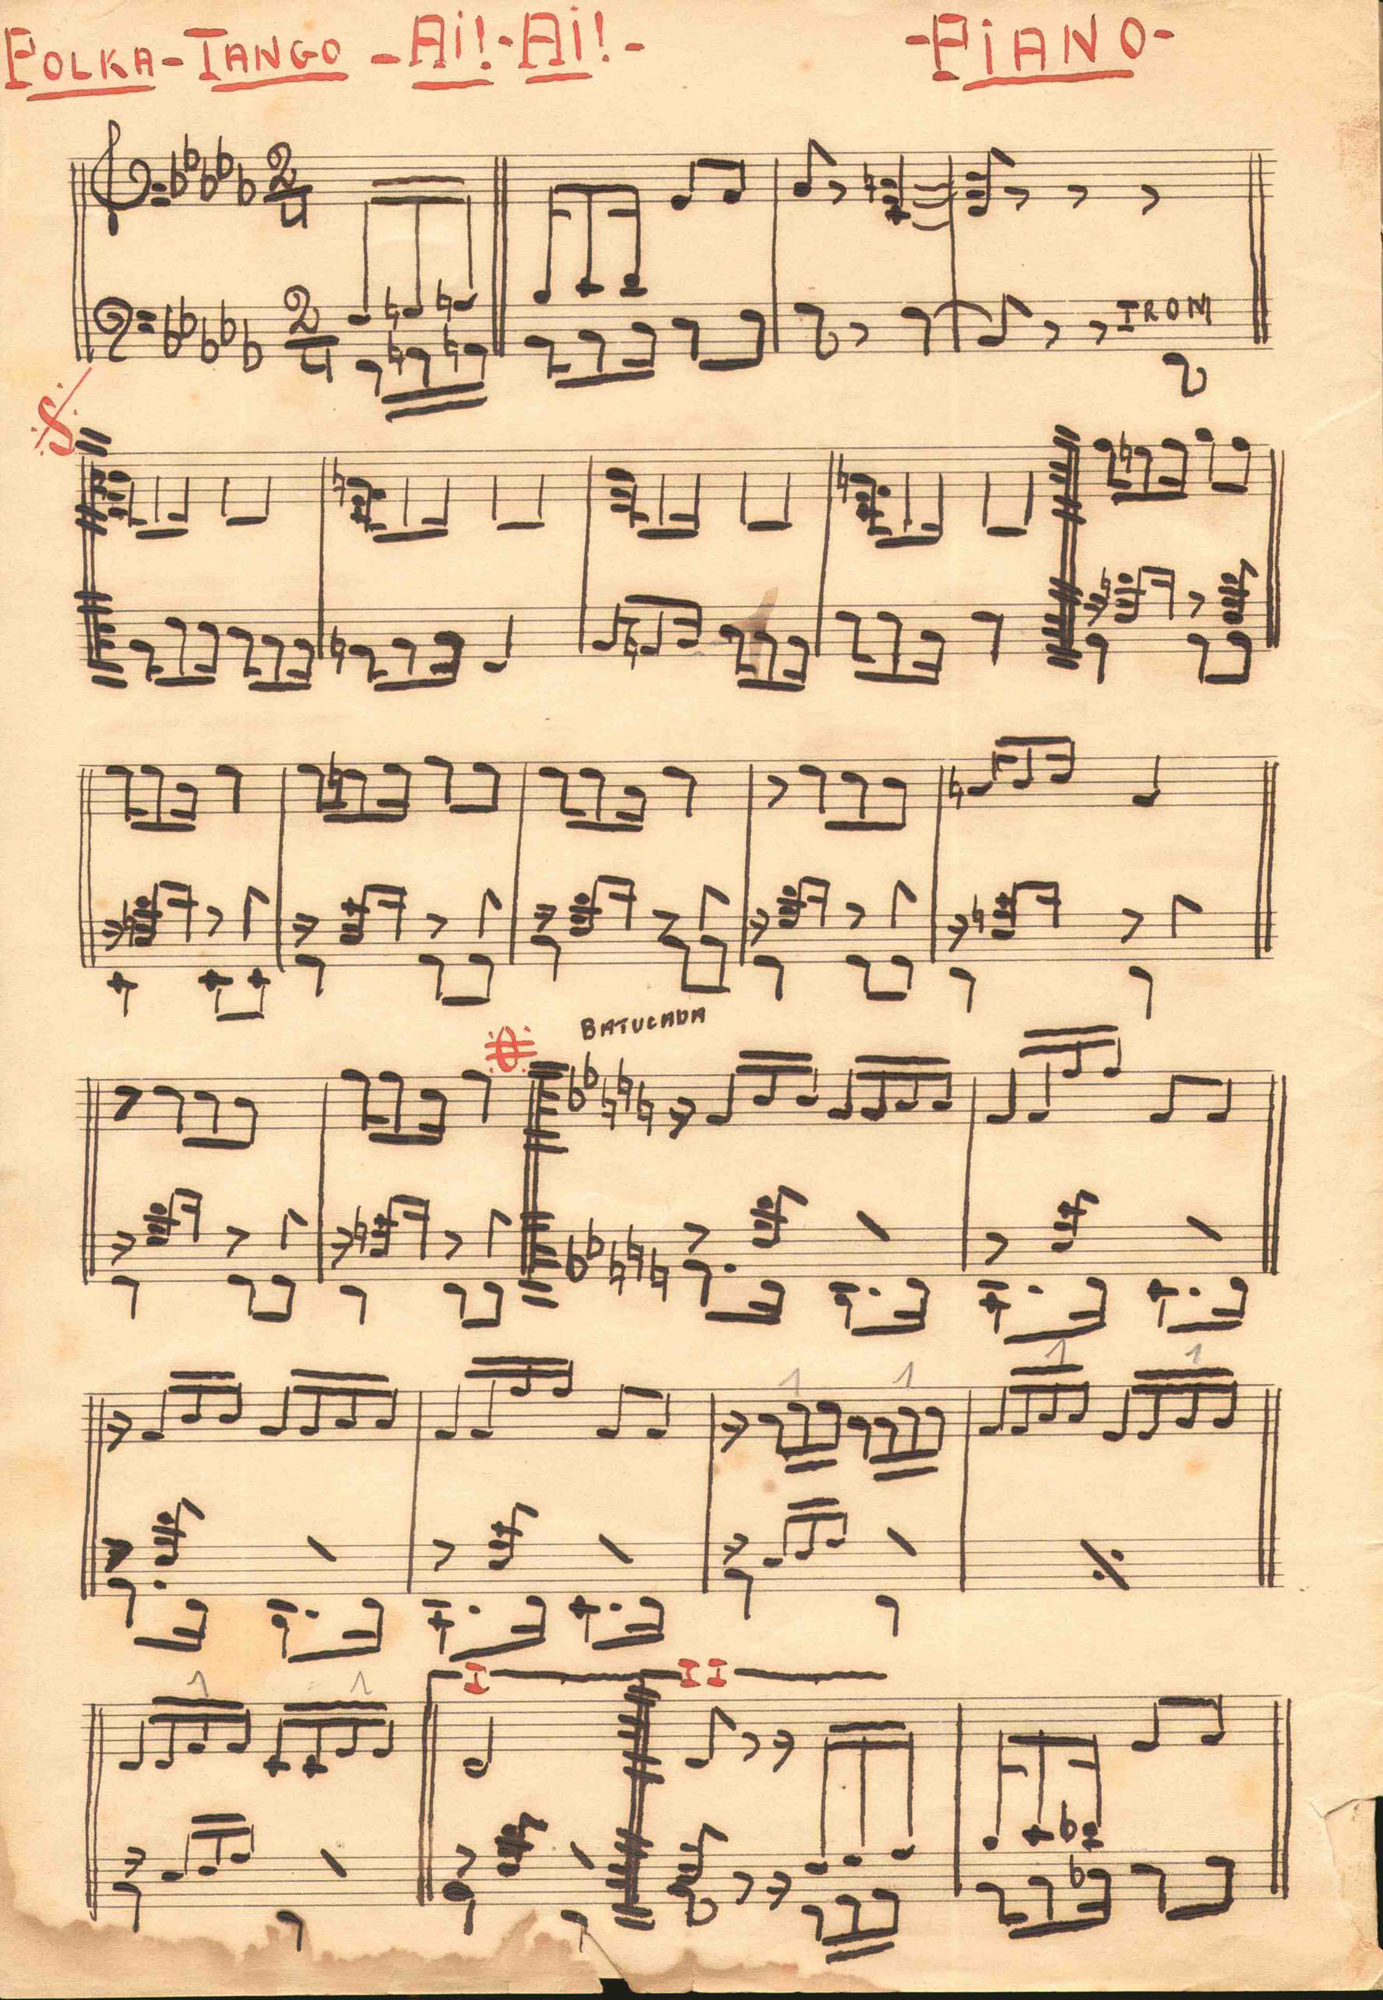 POLKA-TANGO -Ai!-Ai!- -PiANO-
2
4
2
4
IROM
BATUCADA
1 1 1 1
1 1
I II